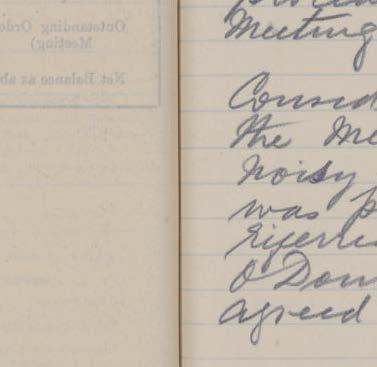 Outstanding Orde
Meeting)
Net Balance as ab
Meeting
Consid
the Me
noisy
was p
O'Don
agreed